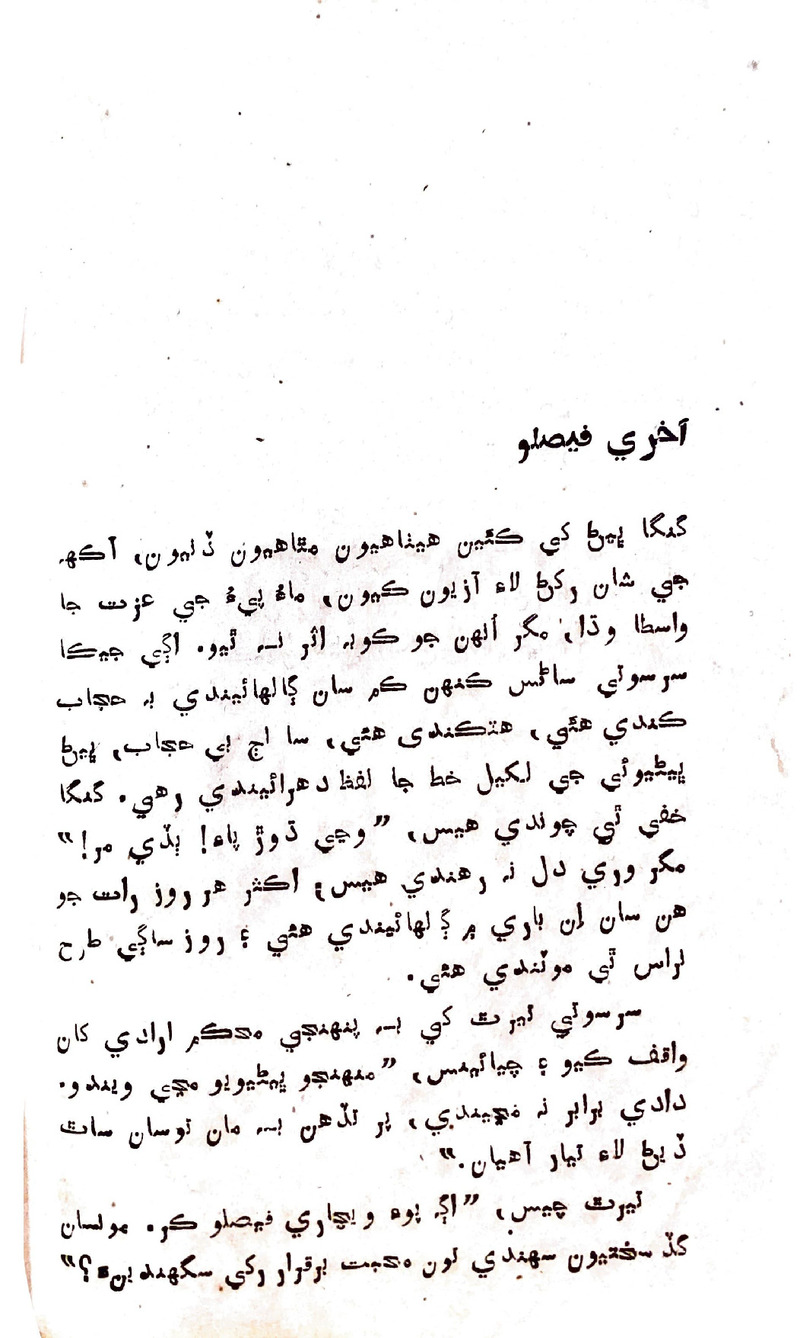 آخري فيصلو
گنگا ڀيڻ کي ڪئين هيٺاهيون مٿاهيون ڏنيون، آکهہ
جي شان رکڻ لاءِ آزيون ڪيون، ماءُ پيءُ جي عزت جا
واسطا وڌا، مگر اُنهن جو ڪوبہ اثر نہ ٿيو. اڳي جيڪا
سرسوتي ساڻس ڪنهن ڪم سان ڳالهائيندي بہ حجاب
ڪندي هئي، هٽڪندي هئي، سا اڄ بي حجاب، ڀيڻ
ڀيڻيوئي جي لکيل خط جا لفظ دهرائيندي رهي. گنگا
خفي ٿي چوندي هيس، ”وڃي ڌوڙ پاءِ! ٻڏي مر!“
مگر وري دل نہ رهندي هيس؛ اڪثر هر روز رات جو
هن سان اِن باري ۾ ڳالهائيندي هئي ۽ روز ساڳي طرح
نراس ٿي موٽندي هئي.
سرسوتي تيرٿ کي بہ پنهنجي محڪم ارادي کان
واقف ڪيو ۽ چيائينس، ”منهنجو ڀيڻيويو مڃي ويندو.
دادي برابر نہ مڃيندي، پر تڏهن بہ مان توسان ساٿ
ڏيڻ لاءِ تيار آهيان.“
تيرٿ چيس، ”اڳ پوءِ ويچاري فيصلو ڪر. مونسان
گڏ سختيون سهندي تون محبت برقرار رکي سگهندينءَ؟“